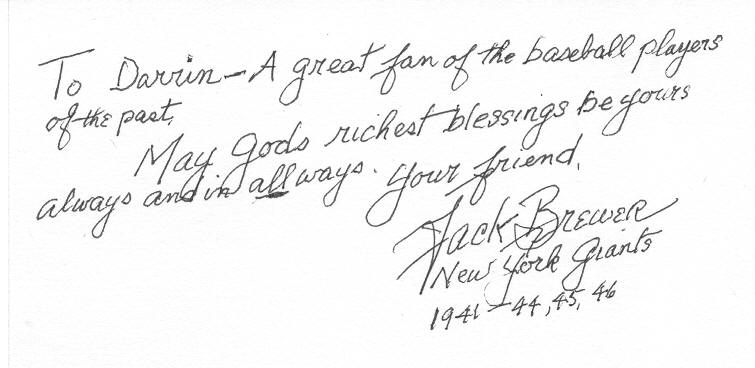 To Darrin - A great fan of the baseball players
of the past.
May Gods richest blessings be yours
always and in all ways. Your friend,
Jack Brewer
New York Giants
1941 - 44, 45, 46